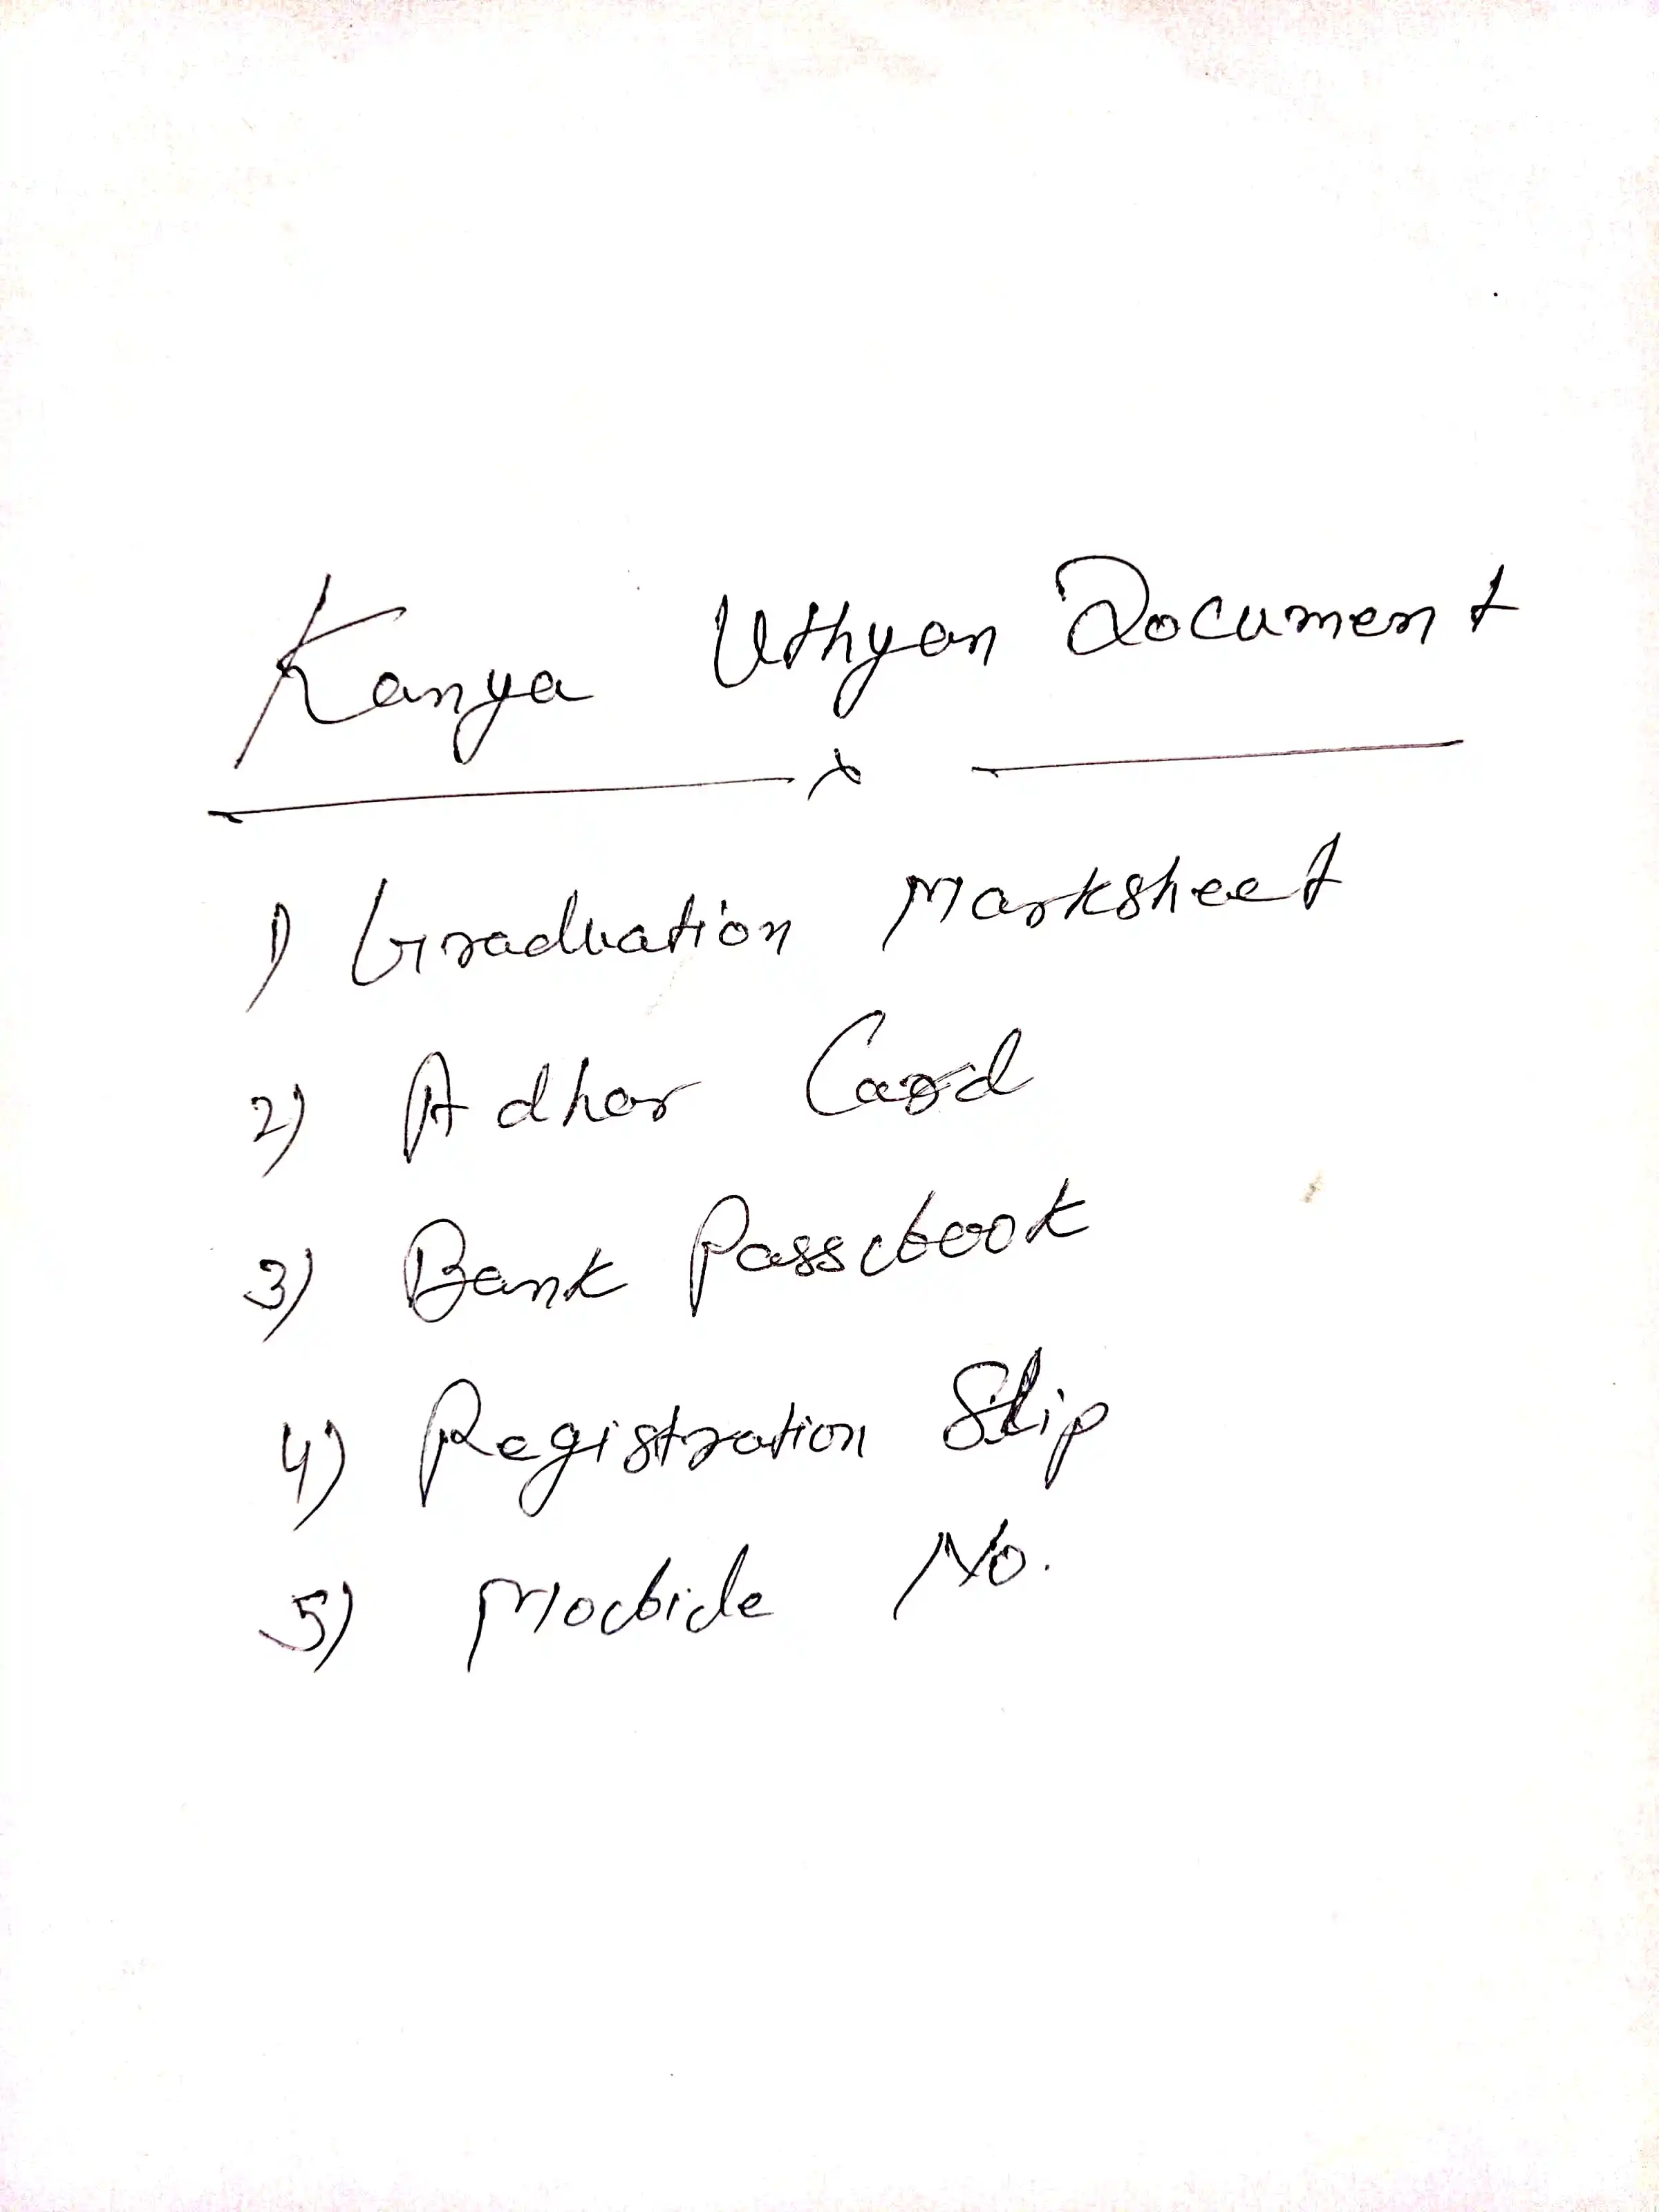 Kanya Uthyan Document
x
1) Graduation Marksheet
2) Adhar Card
3) Bank Passbook
4) Registration Slip
5) Mobile No.